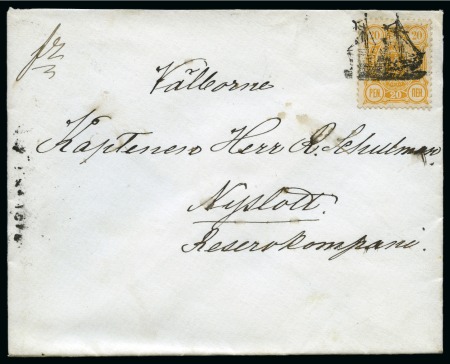 fr
20 20
PEN 20 PEN
Välborne
Kaptenen Herr R. Schulman
Nyslott.
Reservkompani.